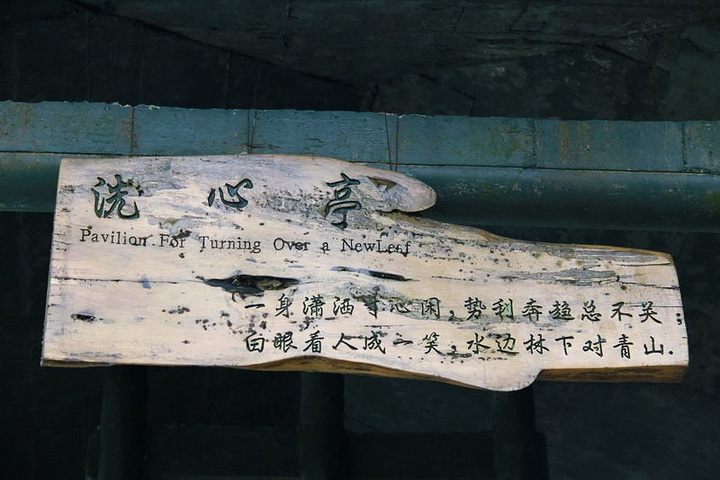 洗心亭
Pavilion For Turning Over a NewLeaf
一身潇洒寸心闲,势利奔趋总不关;
白眼看人成一笑,水边林下对青山.